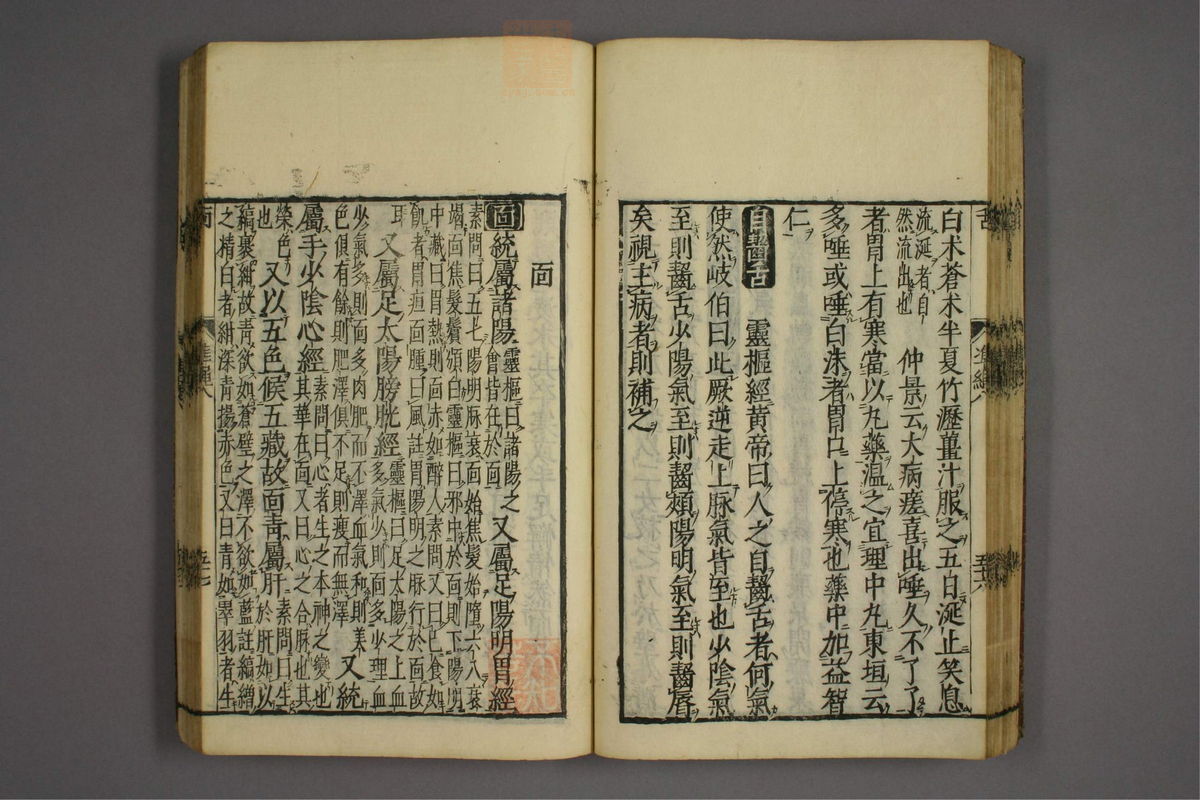 白术蒼术半夏竹瀝薑汁服之五日涎止笑息
流涎者自
然流出也
仲景云大病瘥喜出唾久不了了
者胃上有寒當以丸藥溫之宜理中丸東垣云
多唾或唾白沫者胃口上停寒也藥中加益智
仁
自齧舌
靈樞經黃帝曰人之自齧舌者何氣
使然岐伯曰此厥逆走上脉氣皆至也少陰氣
至則齧舌少陽氣至則齧頰陽明氣至則齧脣
矣視主病者則補之
面
面
統屬諸陽
靈樞曰諸陽之
會皆在於面
又屬足陽明胃經
素問曰五七陽明脉衰面始焦髮始墮六八衰
竭面焦髮鬢頒白靈樞曰邪中於面則下陽明
中藏曰胃熱則面赤如醉人素問又曰已食如
飢者胃疸面腫曰風註胃陽明之脉行於面故
耳
又屬足太陽膀胱經
靈樞曰足太陽之上血
多氣少則面多少理血
少氣多則面多肉肥而不澤血氣和則美
色俱有餘則肥澤俱不足則瘦而無澤
又統
屬手少陰心經
素問曰心者生之本神之變也
其華在面又曰心之合脉也其
榮色
也
又以五色候五藏故面靑屬肝
素問曰生
於肝如以
縞裹紺故靑欲如蒼璧之澤不欲如藍註縞繒
之精白者紺深靑揚赤色又曰靑如翠羽者生